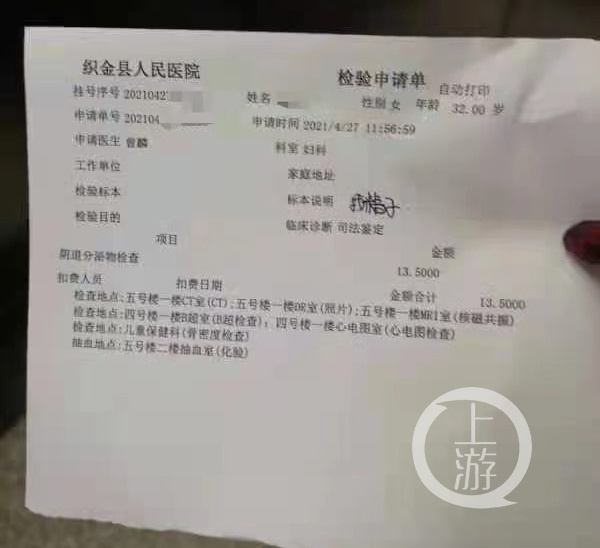 织金县人民医院 检验申请单 自动打印
挂号序号 2021042 姓名 性别 女 年龄 32.00 岁
申请单号 202104 申请时间 2021/4/27 11:56:59
申请医生 曾麟 科室 妇科
工作单位 家庭地址
检验标本 标本说明
检验目的 临床诊断 司法鉴定
项目 金额
阴道分泌物检查 13.5000
扣费人员 扣费日期 金额合计 13.5000
检查地点:五号楼一楼CT室(CT);五号楼一楼DR室(照片);五号楼一楼MRI室(核磁共振)
检查地点:四号楼一楼B超室(B超检查); 四号楼一楼心电图室(心电图检查)
检查地点:儿童保健科(骨密度检查)
抽血地点:五号楼二楼抽血室(化验)
上游